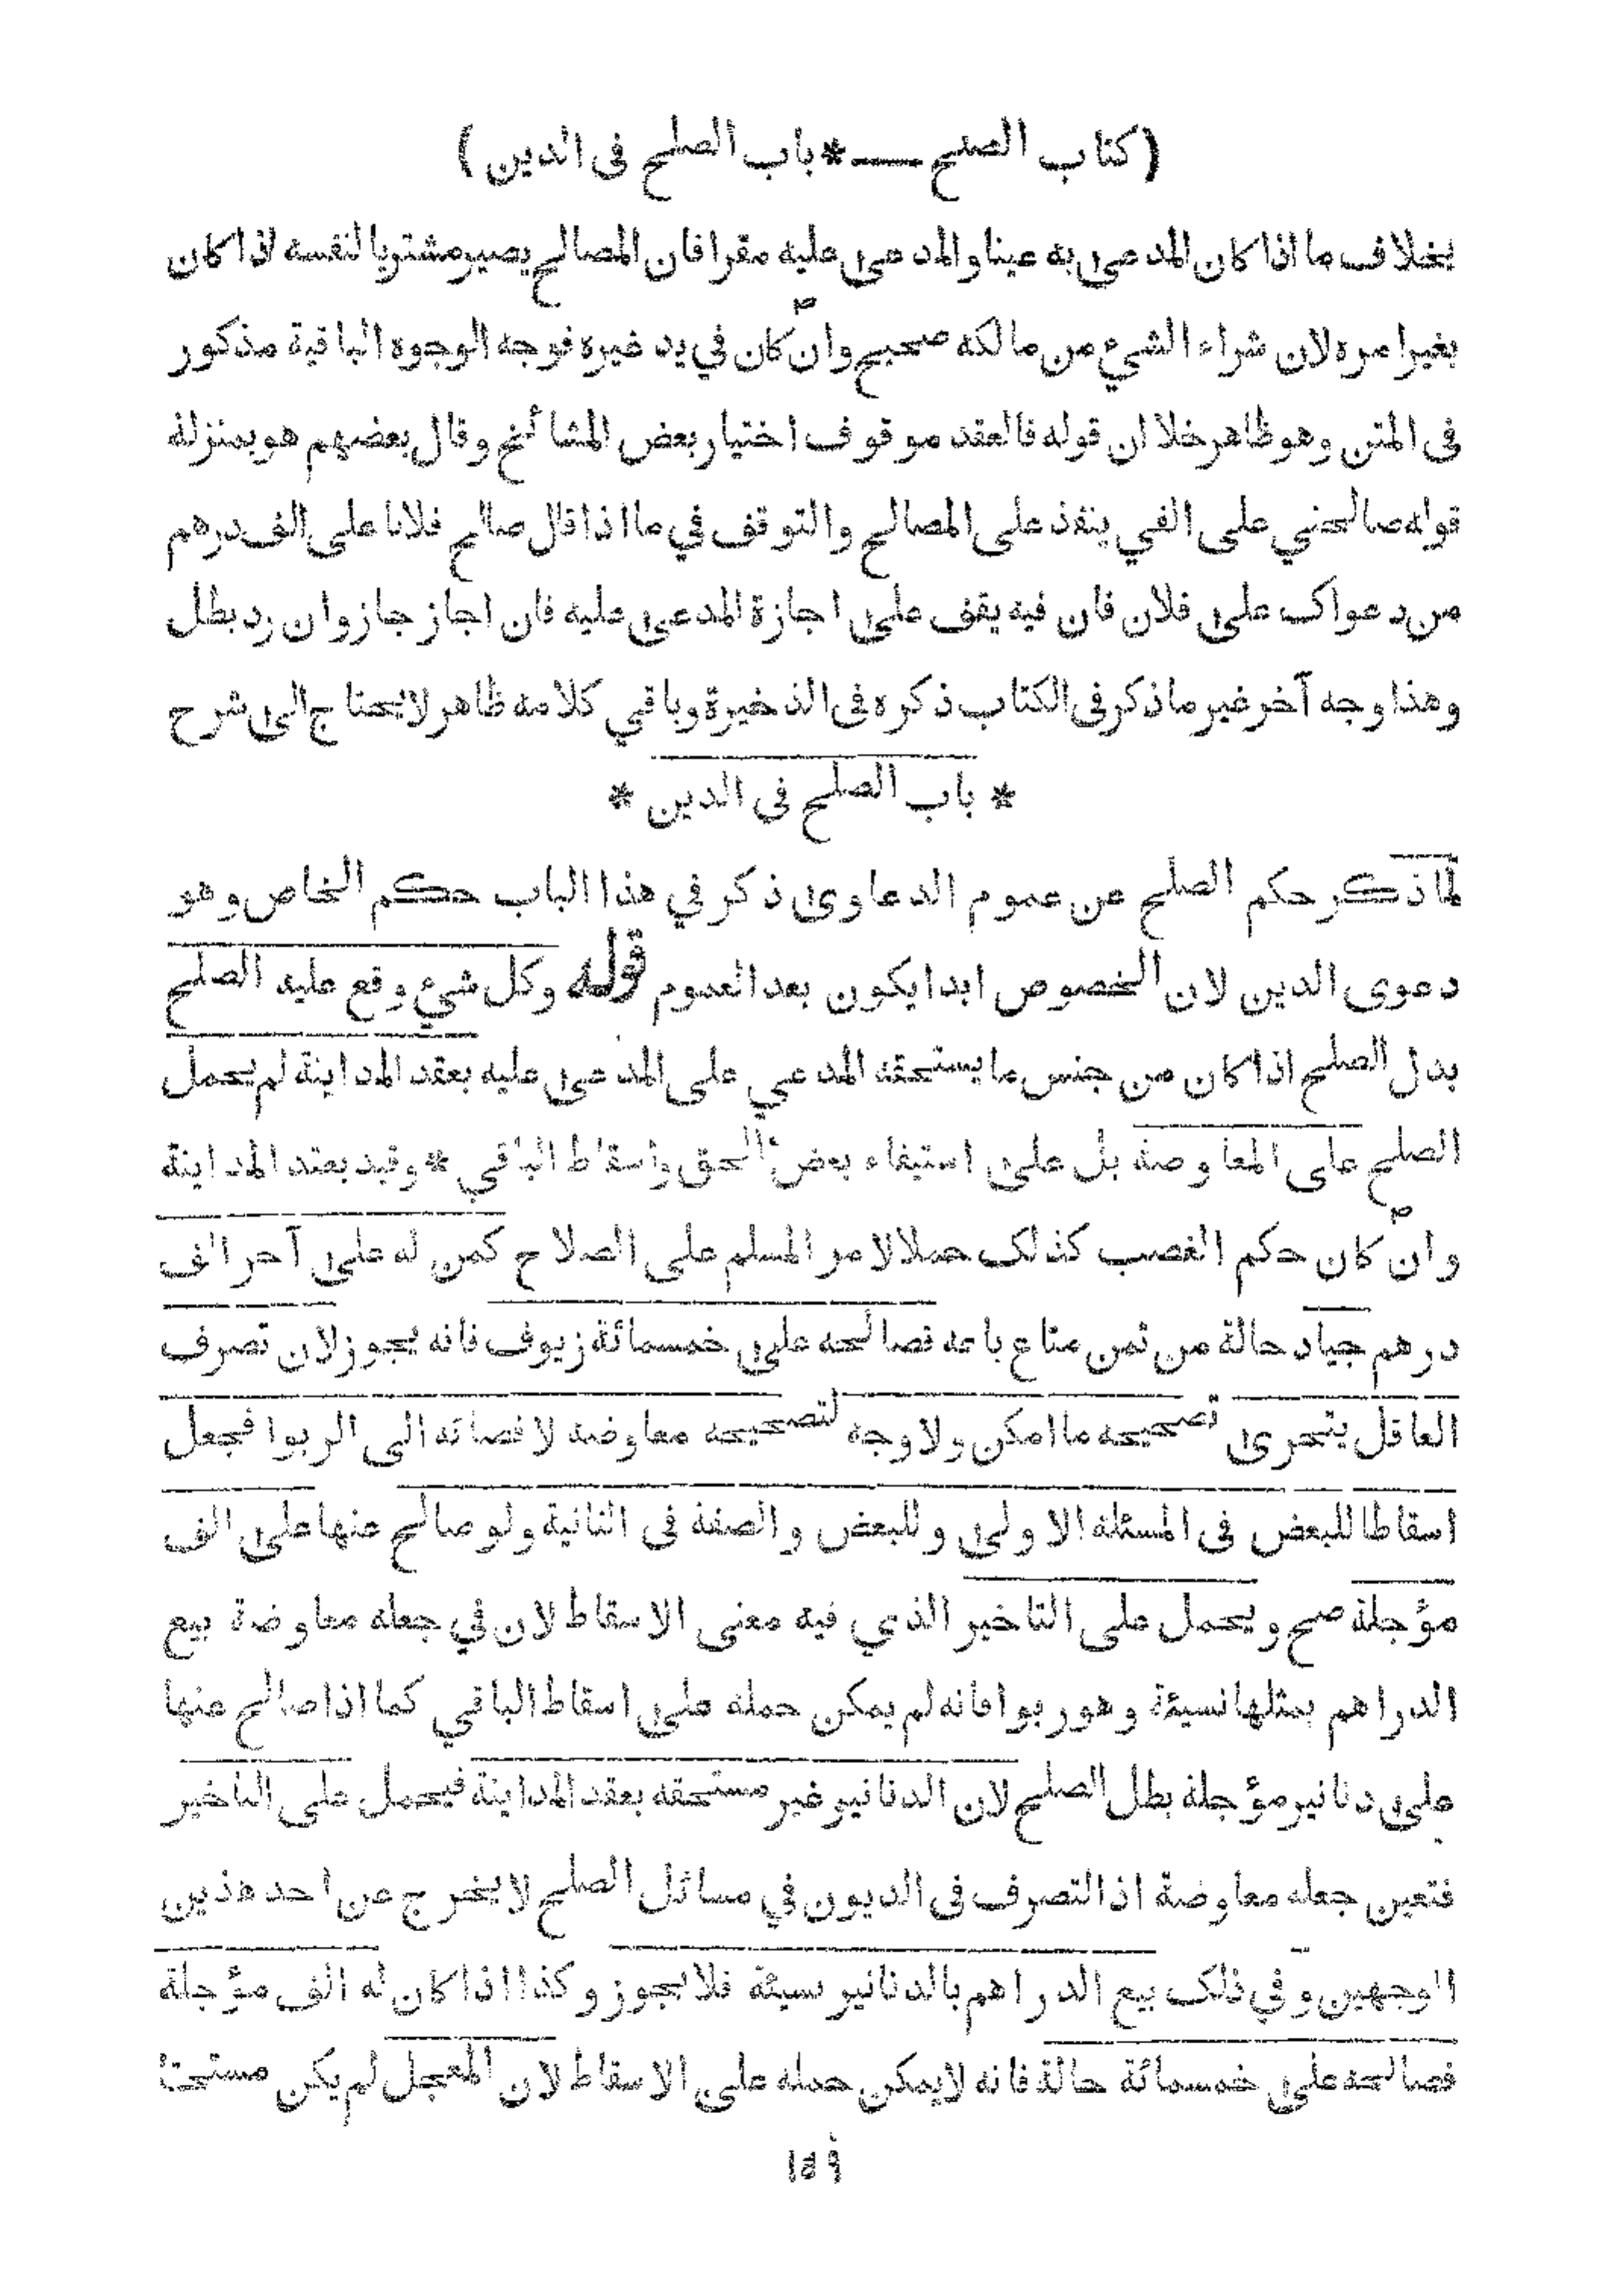 ( كتاب الصلح ـــ * باب الصلح فى الدين )
بخلاف ما اذا كان المدعى به عينا والمدعى عليه مقرا فان المصالح يصير مشتريا لنفسه اذا كان
بغير امره لان شراء الشيء من مالكه صحيح وان كان في يد غيره فوجه الوجوه الباقية مذكور
فى المتن وهو ظاهر خلا ان قوله فالعقد موقوف اختيار بعض المشائخ وقال بعضهم هو بمنزلة
قوله صالحني على الفي ينفذ على المصالح والتوقف في ما اذا قال صالح فلانا على الف درهم
من دعواك على فلان فان فيه يقف على اجازة المدعى عليه فان اجاز جاز وان رد بطل
وهذا وجه آخر غير ما ذكر فى الكتاب ذكره فى الذخيرة وباقي كلامه ظاهر لا يحتاج الى شرح
* باب الصلح فى الدين *
لما ذكر حكم الصلح عن عموم الدعاوى ذكر في هذا الباب حكم الخاص وهو
دعوى الدين لان الخصوص ابدا يكون بعد العموم قوله وكل شيء وقع عليه الصلح
بدل الصلح اذا كان من جنس ما يستحقه المدعي على المدعى عليه بعقد المداينة لم يحمل
الصلح على المعاوضة بل على استيفاء بعض الحق واسقاط الباقي * وقيد بعقد المداينة
وان كان حكم الغصب كذلك حملا لامر المسلم على الصلاح كمن له على آخر الف
درهم جياد حالة من ثمن متاع باعه فصالحه على خمسمائة زيوف فانه يجوز لان تصرف
العاقل يتحرى تصحيحه ما امكن ولا وجه لتصحيحه معاوضة لافضائه الى الربوا فجعل
اسقاطا للبعض فى المسئلة الاولى وللبعض والصفة فى الثانية ولو صالح عنها على الف
مؤجلة صح ويحمل على التاخير الذي فيه معنى الاسقاط لان في جعله معاوضة بيع
الدراهم بمثلها نسيئة وهو ربوا فانه لم يمكن حمله على اسقاط الباقي كما اذا صالح عنها
على دنانير مؤجلة بطل الصلح لان الدنانير غير مستحقه بعقد المداينة فيحمل على التاخير
فتعين جعله معاوضة اذ التصرف فى الديون في مسائل الصلح لا يخرج عن احد هذين
الوجهين وفي ذلك بيع الدراهم بالدنانير نسيئة فلا يجوز وكذا اذا كان له الف مؤجلة
فصالحه على خمسمائة حالة فانه لا يمكن حمله على الاسقاط لان المعجل لم يكن مستحقا